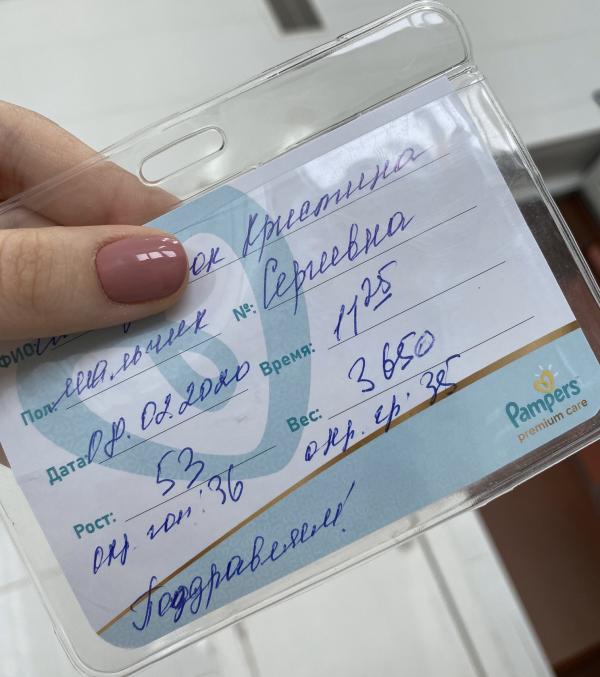 ФИО Кристина
№: Сергеевна
Пол: мальчик
Время: 11 25
Дата: 02.2020
Вес: 3650
Рост: 53
окр. гр: 35
окр. гол: 36
Поздравляем!
Pampers
premium care